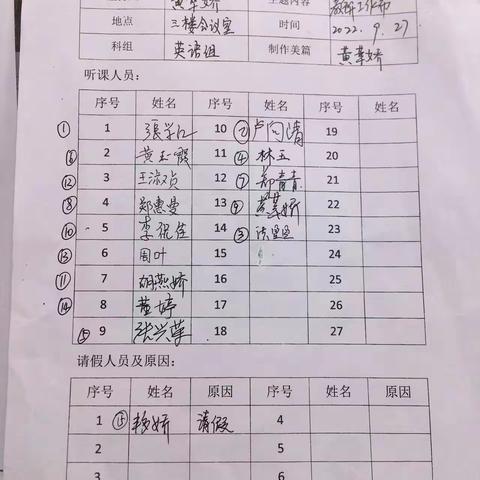 主题内容
地点 三楼会议室 时间 2022.9.27
科组 英语组 制作美篇 黄華娇
听课人员：
序号 姓名 序号 姓名 序号 姓名
① 1 張学江 10 ② 卢向清 19
⑥ 2 黄玉霞 11 ④ 林五 20
⑫ 3 王淑贞 12 ⑦ 郑青青 21
⑧ 4 郑惠曼 13 22
⑩ 5 李祝佳 14 ③ 23
⑬ 6 周叶 15 24
⑪ 7 胡燕娇 16 25
⑭ 8 黄婷 17 26
9 张兴華 18 27
请假人员及原因：
序号 姓名 原因 序号 姓名 原因
1 ⑮ 杨娇 请假 4
2 5
3 6